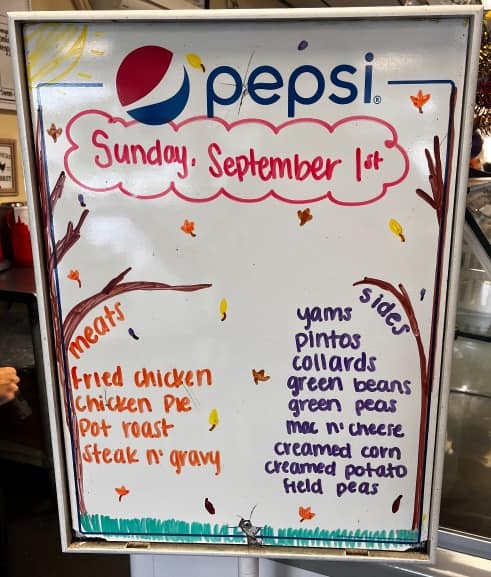 pepsi
Sunday, September 1st
meats
fried chicken
chicken Pie
Pot roast
Steak n' gravy
sides
yams
pintos
collards
green beans
green peas
mac n' cheese
creamed corn
creamed potato
field peas